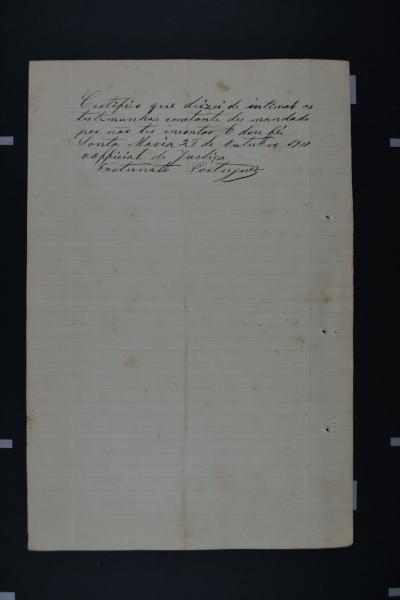 Certifico que deixei de intimar as
testimunhas constante des mandado
por não ter incontro, E dou fé,
Santa Maria 28 de Outubro 191
O official de Justiça
Fortunato Portuguez